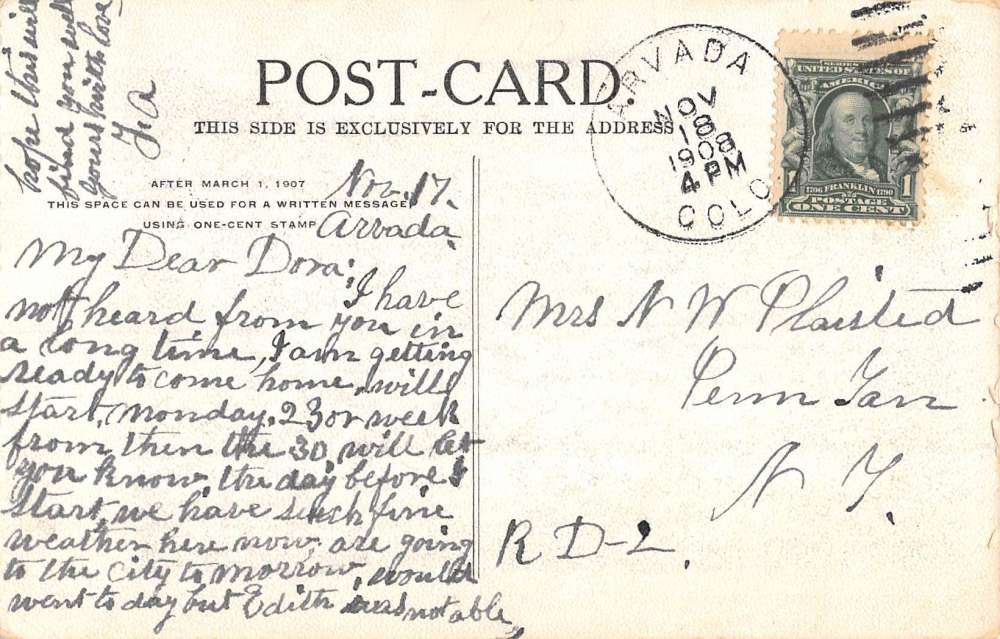 POST-CARD.
THIS SIDE IS EXCLUSIVELY FOR THE ADDRESS
AFTER MARCH 1, 1907
THIS SPACE CAN BE USED FOR A WRITTEN MESSAGE
USING ONE-CENT STAMP
ARVADA
NOV
18
1908
4 PM
COLO
SERIES 1902
UNITED STATES OF
AMERICA
1706 FRANKLIN 1790
1 1
POSTAGE
ONE CENT
Nov. 17.
Arvada
My Dear Dora;
I have
not heard from you in
a long time, I am getting
ready to come home, will
start, monday, 23 or week
from then the 30, will let
you know, the day before I
start, we have such fine
weather here now, are going
to the city to morrow, would
went to day but Edith was not able,
hope this will
find you well
yours with love
Mrs N W Plaisted
Penn Yan
N Y.
R D-2.